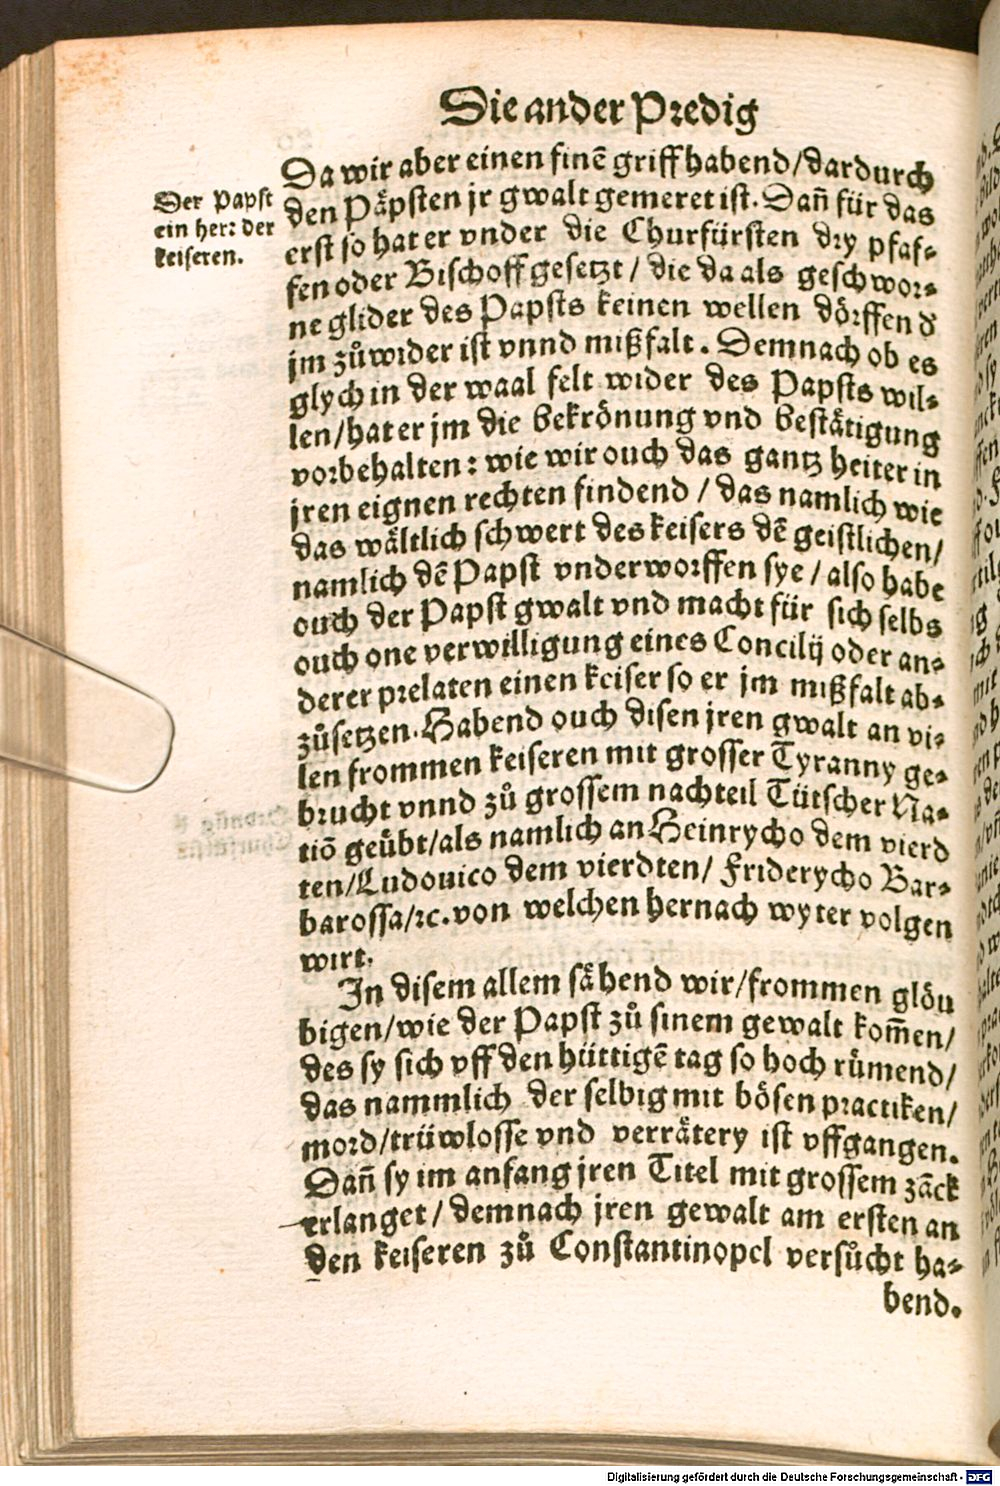 Die ander Predig
Der Papst
ein herꝛ der
keiseren.
Da wir aber einen finē griff habend/dardurch
den Päpsten jr gwalt gemeret ist. Dañ für das
erst so hat er vnder die Churfürsten dry pfaf⸗
fen oder Bischoff gesetzt / die da als geschwor⸗
ne glider des Papsts keinen wellen dörffen d
jm zůwider ist vnnd mißfalt. Demnach ob es
glych in der waal felt wider des Papsts wil⸗
len/hat er jm die bekrönung vnd bestätigung
vorbehalten: wie wir ouch das gantz heiter in
jren eignen rechten findend / das namlich wie
das wältlich schwert des keisers dē geistlichen/
namlich dē Papst vnderworffen sye / also habe
ouch der Papst gwalt vnd macht für sich selbs
ouch one verwilligung eines Concilij oder an⸗
derer prelaten einen keiser so er jm mißfalt ab⸗
zůsetzen. Habend ouch disen jren gwalt an vi⸗
len frommen keiseren mit grosser Tyranny ge⸗
brucht vnnd zů grossem nachteil Tütscher Na⸗
tiō geübt/als namlich an Heinrycho dem vierd
ten/Ludouico dem vierdten/ Friderycho Bar⸗
barossa/ꝛc. von welchen hernach wyter volgen
wirt.
In disem allem sähend wir/frommen glöu
bigen/wie der Papst zů sinem gewalt kom̃en/
des sy sich vff den hüttigē tag so hoch růmend/
das nammlich der selbig mit bösen practiken/
mord/trüwlosse vnd verrätery ist vffgangen.
Dañ sy im anfang jren Titel mit grossem zāck
erlanget / demnach jren gewalt am ersten an
den keiseren zů Constantinopel versůcht ha⸗
bend.
Digitalisierung gefördert durch die Deutsche Forschungsgemeinschaft - DFG